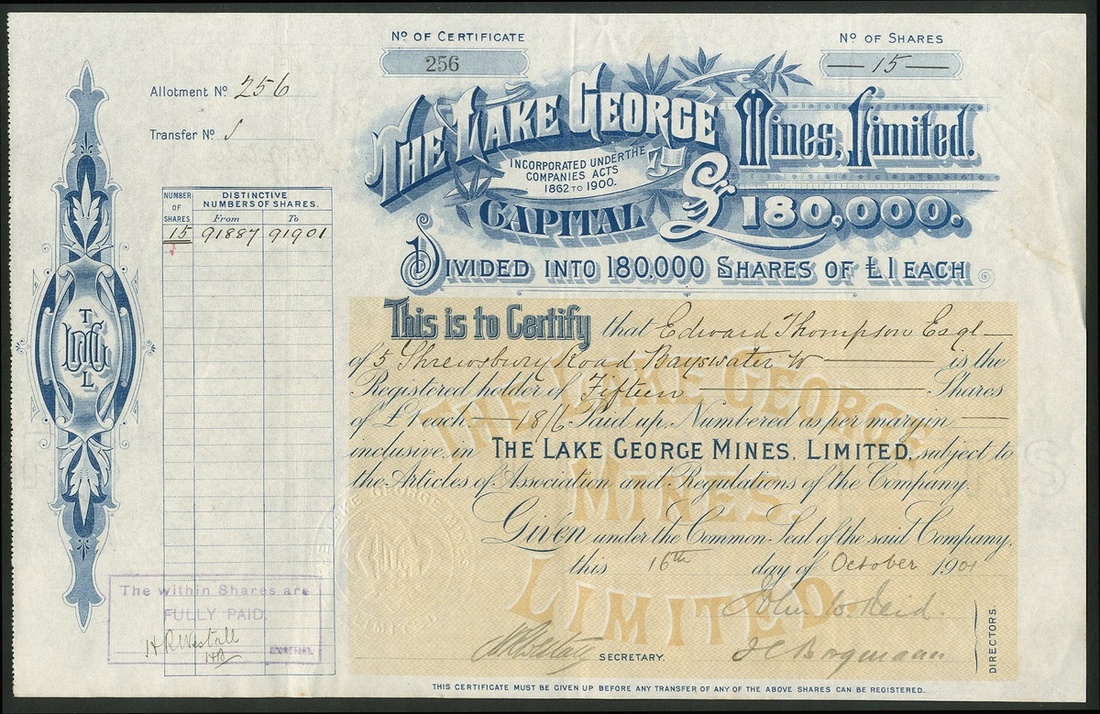 Nº OF CERTIFICATE
256
Nº OF SHARES
15
Allotment Nº 256
Transfer Nº
THE LAKE GEORGE Mines, Limited.
INCORPORATED UNDER THE
COMPANIES ACTS
1862 TO 1900.
CAPITAL £180,000.
DIVIDED INTO 180,000 SHARES OF £1 EACH
NUMBER OF SHARES
DISTINCTIVE NUMBERS OF SHARES.
From To
15 91887 91901
This is to Certify that Edward Thompson Esqre
of 5 Shrewsbury Road Bayswater W is the
Registered holder of Fifteen Shares
of £1 each 18/6 Paid up. Numbered as per margin
inclusive, in THE LAKE GEORGE MINES, LIMITED, subject to
the Articles of Association and Regulations of the Company.
Given under the Common Seal of the said Company,
this 16th day of October 1901
THE LAKE GEORGE
MINES.
LIMITED.
T
L
The within Shares are
FULLY PAID.
H R Westall
SECRETARY.
John W. Reid
SECRETARY.
DIRECTORS.
THIS CERTIFICATE MUST BE GIVEN UP BEFORE ANY TRANSFER OF ANY OF THE ABOVE SHARES CAN BE REGISTERED.